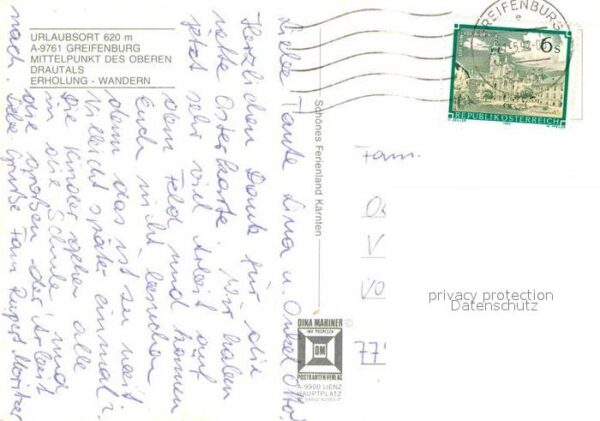 URLAUBSORT 620 m
A-9761 GREIFENBURG
MITTELPUNKT DES OBEREN
DRAUTALS
ERHOLUNG - WANDERN
Liebe Tante Lina u. Onkel Otto!
Herzlichen Dank für die
nette Osterkarte. Wir haben
jetzt sehr viel Arbeit auf
dem Feld und können
Euch nicht besuchen
denn das ist zu weit
vielleicht später einmal.
Die Kinder gehen alle
in die Schule und
die großen der Arbeit
nach. Liebe Grüße Fam.
Schönes Ferienland Kärnten
GREIFENBURG
6 S
REPUBLIK ÖSTERREICH
Fam.
V
77
DINA MARINER
DM
POSTKARTENVERLAG
A-9900 LIENZ
HAUPTPLATZ
privacy protection
Datenschutz